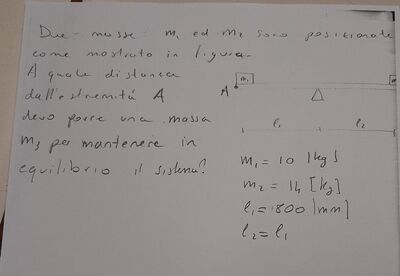 Due masse m1 ed m2 sono posizionate
come mostrato in figura.
A quale distanza
dall'estremitá A
devo porre una massa
m3 per mantenere in
equilibrio il sistema?
m1
A
l1
l2
m1 = 10 [kg]
m2 = 14 [kg]
l1 = 800 [mm]
l2 = l1